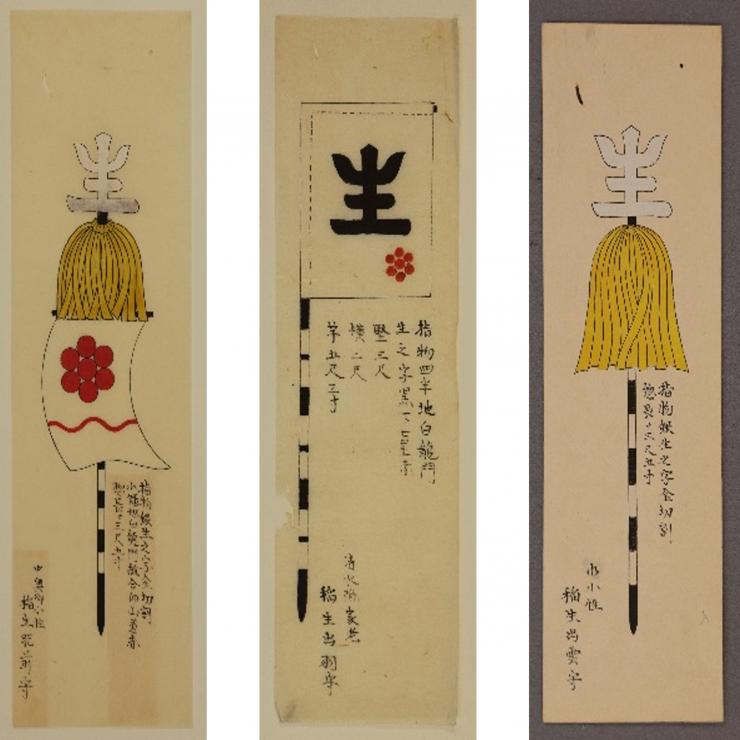 生
指物 生之字金切割
小籏地白龍門 合印山道赤
惣長サ三尺五寸
中奥御小性
稲生肥前守
生
指物四半地白龍門
生之字黒下七星赤
竪三尺
横二尺
竿五尺三寸
清水附家老
稲生出羽守
生
指物 生之字金切割
惣長サ三尺五寸
御小性
稲生出雲守